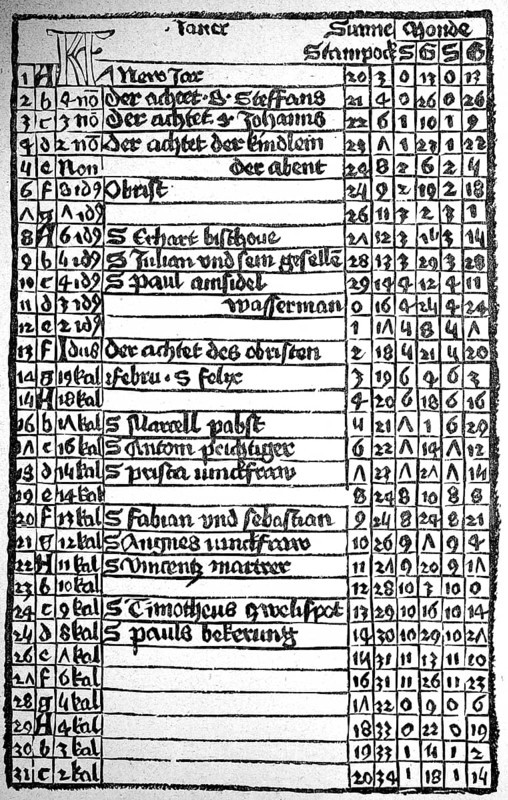 KL Janer Sunne Monde
Stainpock S G S G
1 A New Jar 20 3 0 13 0 13
2 b 4 nō Der achtet S Steffans 21 4 0 26 0 26
3 c 3 nō Der achtet S Johanns 22 6 1 10 1 9
4 d 2 nō Der achtet der kindlein 23 7 1 23 1 22
5 e Non Der abent 24 8 2 6 2 5
6 f 8 idꝰ Obrist 25 9 2 19 2 18
7 g 7 idꝰ 26 11 3 2 3 1
8 A 6 idꝰ S Erhart bischoue 27 12 3 15 3 14
9 b 5 idꝰ S Julian vnd sein geselle 28 13 3 29 3 28
10 c 4 idꝰ S Paul ainsidel 29 14 4 12 4 11
11 d 3 idꝰ Wasserman 0 16 4 25 4 24
12 e 2 idꝰ 1 17 5 8 5 7
13 f Idus Der achtet des obristen 2 18 5 21 5 20
14 g 19 kal Febru S Felix 3 19 6 4 6 3
15 A 18 kal 4 20 6 18 6 16
16 b 17 kal S Marcell pabst 5 21 7 1 6 29
17 c 16 kal S Antoni peichtiger 6 22 7 14 7 12
18 d 15 kal S prisca iunckfraw 7 23 7 27 7 25
19 e 14 kal 8 24 8 10 8 8
20 f 13 kal S Fabian vnd sebastian 9 25 8 24 8 21
21 g 12 kal S Angnes iunckfraw 10 26 9 7 9 4
22 A 11 kal S Vincentz martrer 11 27 9 20 9 17
23 b 10 kal 12 28 10 3 10 0
24 c 9 kal S Timotheus zwelifpot 13 29 10 16 10 14
25 d 8 kal S Pauls bekerung 14 30 10 29 10 27
26 e 7 kal 15 31 11 13 11 10
27 f 6 kal 16 31 11 26 11 23
28 g 5 kal 17 32 0 9 0 6
29 A 4 kal 18 33 0 22 0 19
30 b 3 kal 19 33 1 5 1 2
31 c 2 kal 20 34 1 18 1 15